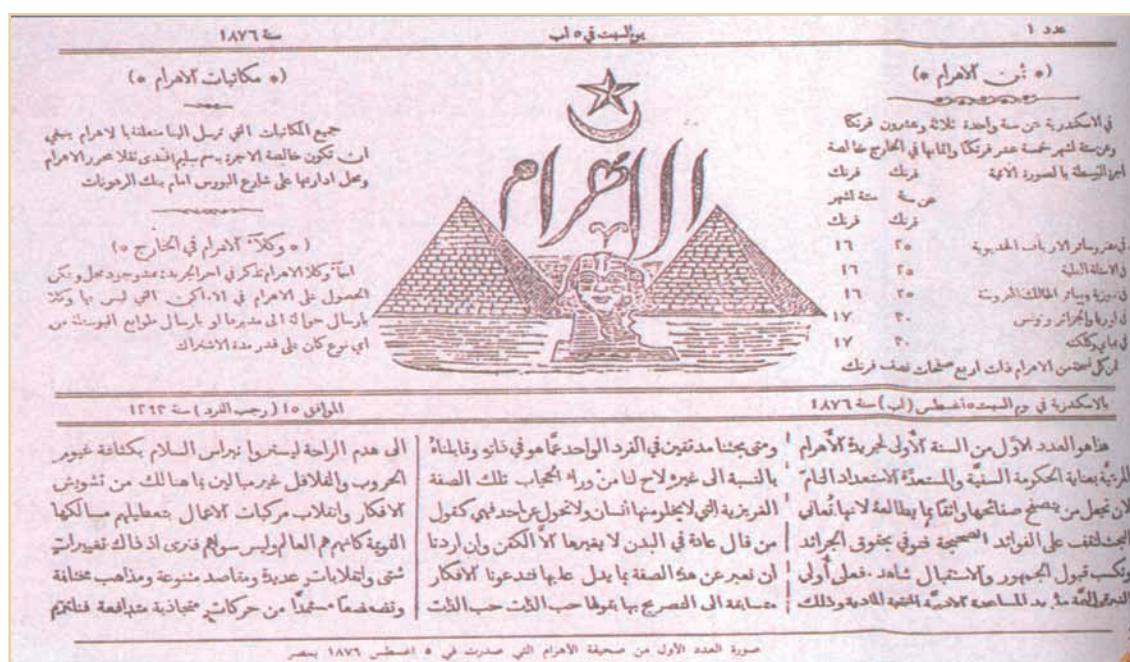 عدد ١
يوم السبت في ٥ اب
سنة ١٨٧٦
(* ثمن الاهرام *)
في الاسكندرية عن سنة واحدة ثلاثة وعشرون فرنكًا
وعن ستة اشهر خمسة عشر فرنكًا واثمانها في الخارج خالصة
اجرة البوسطة بالصورة الآتية
فرنك فرنك
عن سنة ستة اشهر
فرنك فرنك
في مصر وسائر الارياف الخديوية ٢٥ ١٦
في الاستانة العلية ٢٥ ١٦
في سورية وسائر الممالك المحروسة ٢٥ ١٦
في اوربا والجزائر وتونس ٣٠ ١٧
في بمباي وكلكته ٣٠ ١٧
ان كل نسخة من الاهرام ذات اربع صفحات نصف فرنك
الاهرام
(* مكاتبات الاهرام *)
جميع المكاتبات التي ترسل الينا متعلقة بالاهرام ينبغي
ان تكون خالصة الاجرة باسم سليم افندي تقلا محرر الاهرام
ومحل ادارتها على شارع البورس امام بنك الرهونات
(* وكلآء الاهرام في الخارج *)
اسمآء وكلا الاهرام تذكر في اخر الجريدة عند وجود محل ويمكن
الحصول على الاهرام في الاماكن التي ليس بها وكلا
بارسال حوالة الى مديرها او بارسال طوابع البوسطة من
اي نوع كان على قدر مدة الاشتراك
بالاسكندرية في يوم السبت ٥ اغسطس (اب) سنة ١٨٧٦
الموافق ١٥ (رجب الفرد) سنة ١٢٩٣
هذا هو العدد الأول من السنة الأولى لجريدة الأهرام
المرئية بعناية الحكومة السنية والمستعدة الاستعداد التام
لان تجعل من يتصفح صفائحها واثقا بما يطالعه لانها تعاني
البحث لتقف على الفوائد الصحيحة فتوفي بحقوق الجرائد
وتكسب قبول الجمهور والاستقبال شاهد . فعلى أولي
المساعدة الادبية المادية وذلك
ومتى بحثنا مدققين في الفرد الواحد عمّا هو في ذاتهِ وقابلناهُ
بالنسبة الى غيرهِ لاح لنا من وراء الحجاب تلك الصفة
الغريزية التي لا يخلو منها انسان ولا تحول عن احد فهي كقول
من قال عادة في البدن لا يغيرها الاّ الكفن وان اردنا
ان نعبر عن هذه الصفة بما يدل عليها فتدعونا الافكار
متسابقة الى التصريح بها بقولها حب الذات حب الذات
الى هدم الراحة ليستروا نبراس السلام بكثافة غيوم
الحروب والقلاقل غير مبالين بما هنالك من تشويش
الافكار وانقلاب مركبات الاعمال بتعطيلهم مسالكها
القوية كانهم هم العالم وليس سواهم فنرى اذ ذاك تغييراتٍ
شتى وانقلابات عديدة ومقاصد متنوعة ومذاهب مختلفة
وتضعضعًا مستمدًا من حركاتٍ متجاذبة متدافعة
صورة العدد الأول من صحيفة الأهرام التي صدرت في ٥ اغسطس ١٨٧٦ بمصر